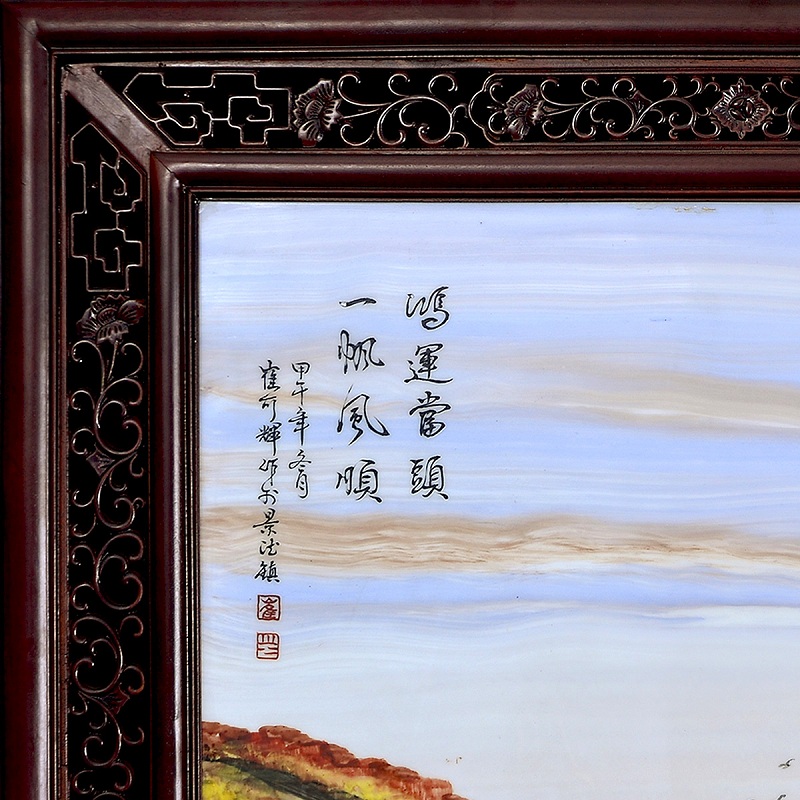 鴻運當頭
一帆風順
甲午年冬月
崔可輝作於景德鎮